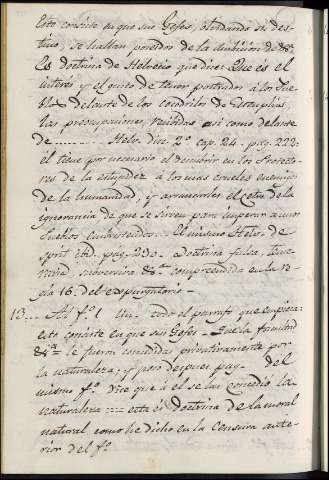 Esto consiste en que sus Gefes, olvidando su des-
tino, se hallan poseidos de la ambicion de &c.
Es doctrina de Helvecio que dice: Que es el
interes y el gusto de tener postrados a los Pue-
blos delante de los cocodrilos de
las preocupaciones, reunidas asi como delante
de ......... Helv. disc. 2.º cap. 24. pag. 222:
el tiene por necesario el descubrir en los Protecto-
res de la estupidez à los mas crueles enemigos
de la humanidad, y arrancarles el cetro de la
ignorancia de que se sirven para imperar à unos
Pueblos embrutecidos. El mismo Helv. de
sprit ibid. pag. Doctrina falsa,
subversiva &.ª comprendida en la re-
gla 16. del expurgatorio.
13... Al f.º 1 lin. todo el parrafo que empieza:
esto consiste en que sus Gefes - Que la
&.ª le fueron concedidas privativamente por
la naturaleza; y poco despues pag. del
mismo f.º dice que à él se las concedió la
naturaleza = esta es doctrina de la moral
natural, como he dicho en la censura ante-
rior del f.º